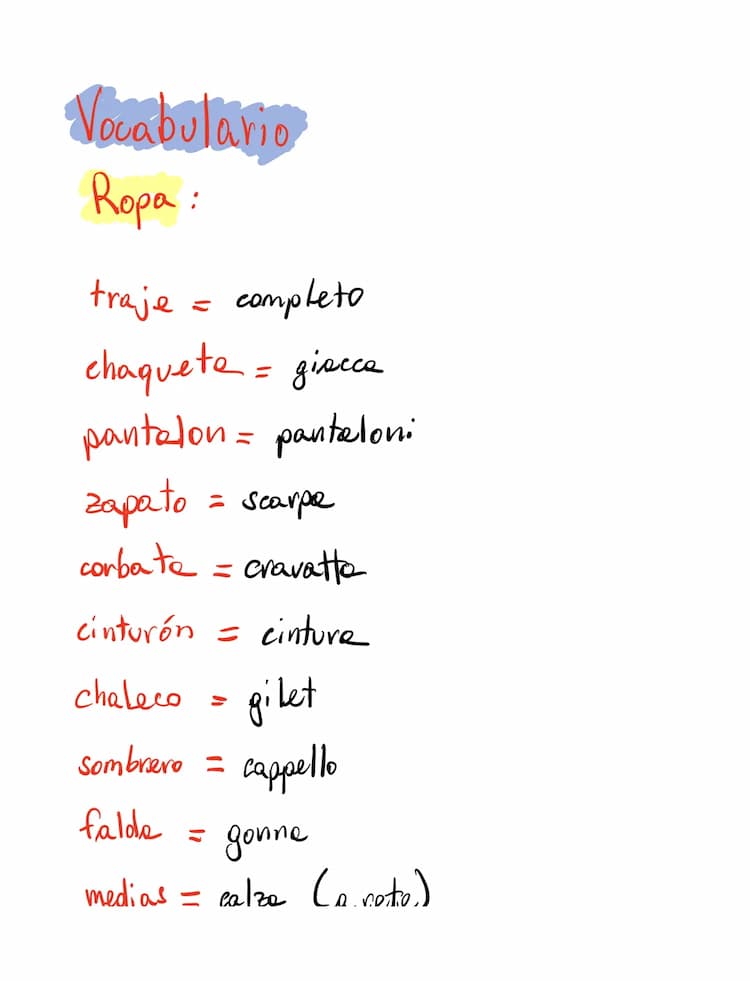 Vocabulario
Ropa :
traje = completo
chaqueta = giacca
pantalon = pantaloni
zapato = scarpa
corbata = cravatta
cinturón = cintura
chaleco = gilet
sombrero = cappello
falda = gonna
medias = calza